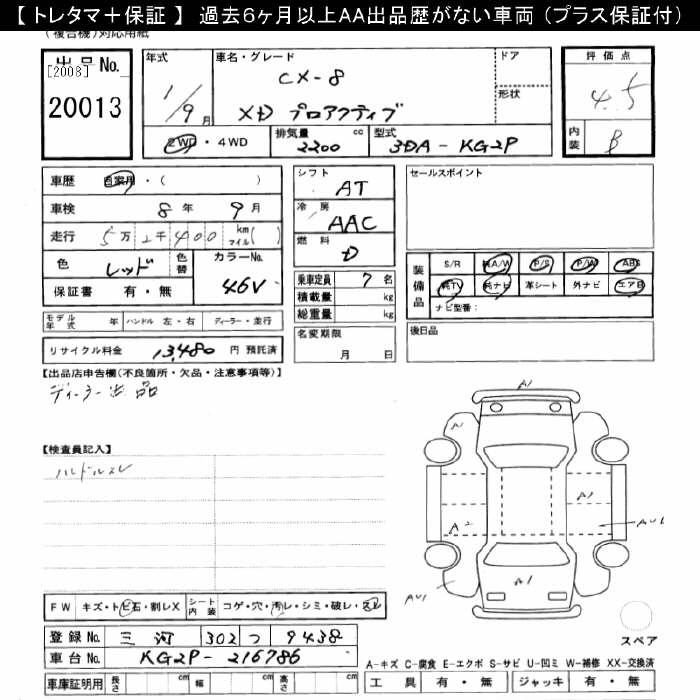 【 トレタマ＋保証 】 過去6ヶ月以上AA出品歴がない車両 (プラス保証付)
(複合機)対応用紙
出品No.
[2008]
20013
年式
1/9月
車名・グレード
CX-8
XD プロアクティブ
ドア
形状
評価点
4.5
内装 B
2WD・4WD
排気量 2200 cc
型式 3DA-KG2P
車歴 自家用・( )
車検 8年 9月
走行 5万 2千 400 km マイル( )
色 レッド 色替
カラーNo. 46V
保証書 有・無
シフト AT
冷房 AAC
燃料 D
乗車定員 7名
積載量 kg
総重量 kg
セールスポイント
装備品
S/R 純A/W P/S P/W ABS
純TV 純ナビ 革シート 外ナビ エアB
ナビ型番：
モデル年式 年 ハンドル 左・右 ディーラー・並行
リサイクル料金 13,480 円 預託済
名変期限 月 日
後日品
【出品店申告欄(不良箇所・欠品・注意事項等)】
ディーラー出品
【検査員記入】
ハンドルスレ
A1
A1
A2
AU1
AU1
A1
FW キズ・トビ石・割レX
シート内装 コゲ・穴・汚レ・シミ・破レ・スレ
登録No. 三河 302 つ 9438
車台No. KG2P-216786
車庫証明用 長さ cm 幅 cm 高さ cm
スペア
A-キズ C-腐食 E-エクボ S-サビ U-凹ミ W-補修 XX-交換済
工具 有・無 ジャッキ 有・無